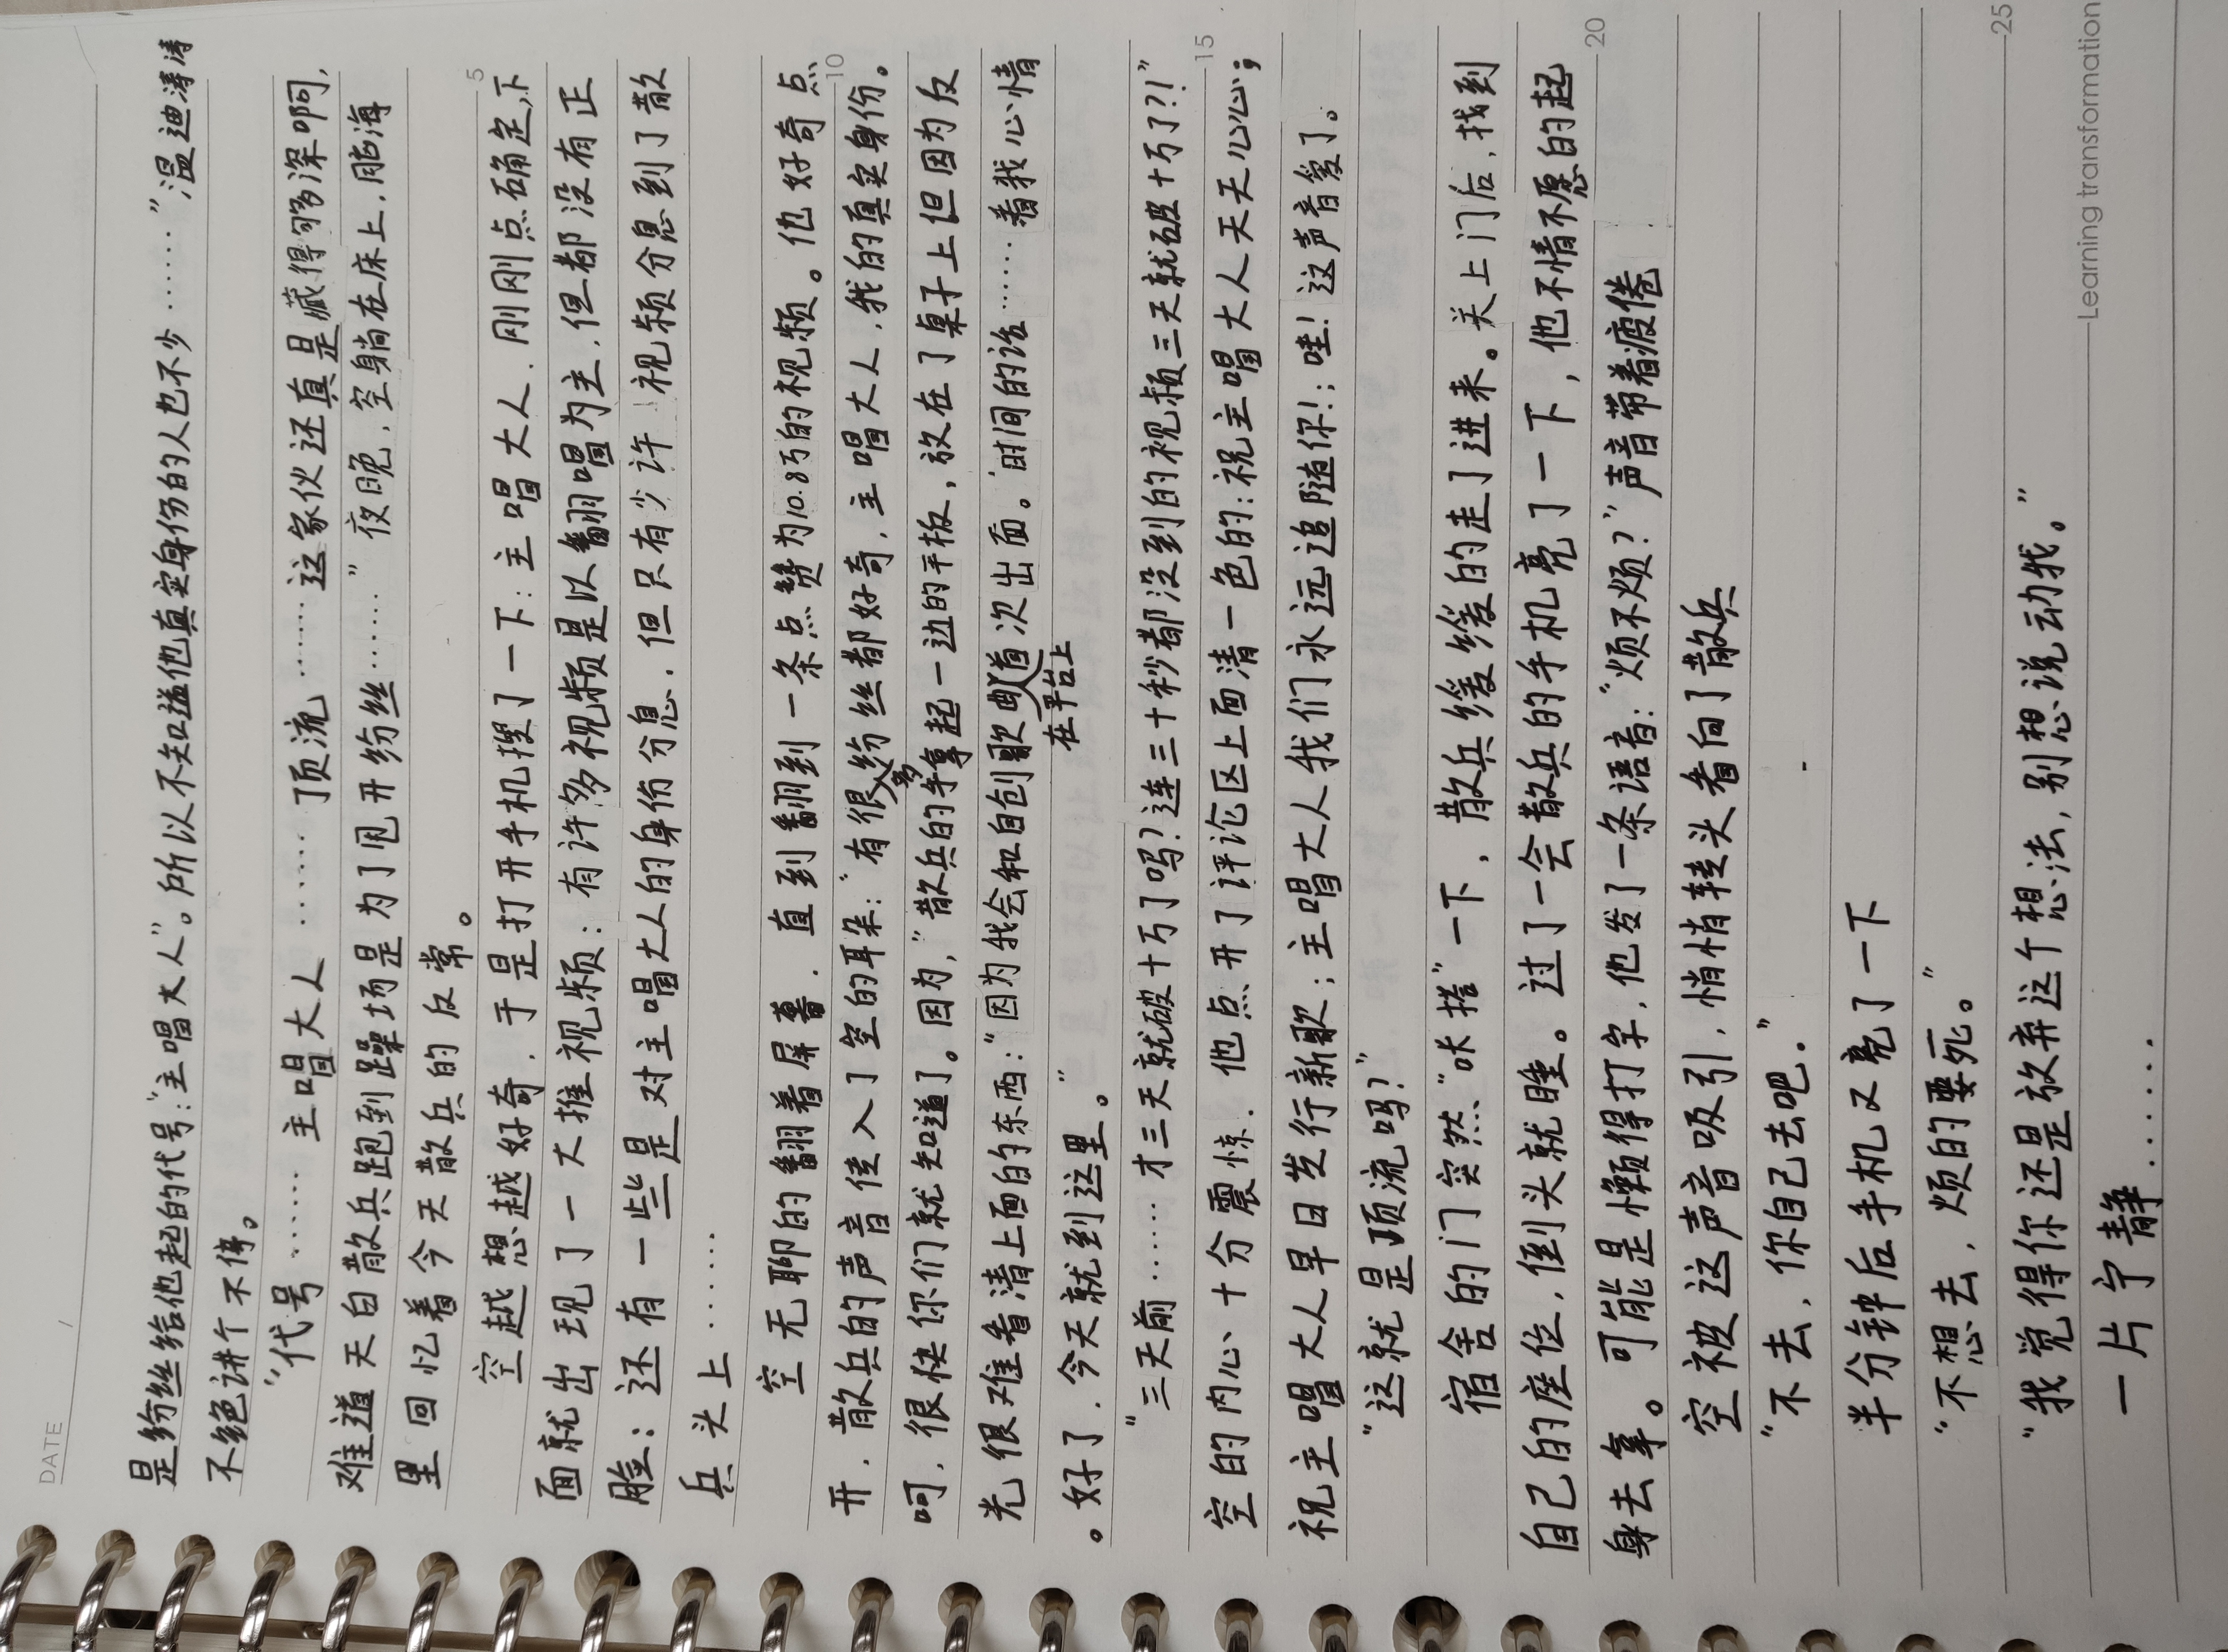 DATE /
是纷丝给他起的代号:“主唱大人”。所以不知益他真实身份的人也不少……”温迪涛涛
不绝讲个不停。
“代号…… 主唱大人 …… 顶流…… 这家伙还真是藏得够多深啊,
难道天白散兵跑到躁场是为了甩开纷丝……”夜晚,空躺在床上,脑海
里回忆着今天散兵的反常。
5
空越想越好奇,于是打开手机搜了一下:主唱大人,刚刚点确定,下
面就出现了一大推视频:有许多视频是以翻唱为主,但都没有正
脸;还有一些是对主唱大人的身份分息,但只有少许视频分息到了散
兵头上……
空无聊的翻着屏幕,直到翻到一条点赞为10.8万的视频。他好奇点
10
开,散兵的声音传入了空的耳朵:“有很多纷丝都好奇,主唱大人,我的真实身份。
呵,很快你们就知道了。因为,”散兵的手拿起一边的平板,放在了桌子上但因为反
光很难看清上面的东西:“因为我会和自创歌曲首次在平台上出面。时间的话……看我心情
。好了,今天就到这里。”
“三天前…… 才三天就破十万了吗?连三十秒都没到的视频三天就破十万了??!”
15
空的内心十分震惊,他点开了评论区上面清一色的:祝主唱大人天天心心;
祝主唱大人早日发行新歌;主唱大人我们永远追随你!;哇!这声音爱了。
“这就是顶流吗?”
宿舍的门突然“咔撘”一下,散兵缓缓的走了进来。关上门后,找到
自己的座位,倒头就睡。过了一会散兵的手机亮了一下,他不情不愿的起
20
身去拿。可能是懒得打字,他发了一条语音:“烦不烦?”声音带着疲倦
空被这声音吸引,悄悄转头看向了散兵
“不去,你自己去吧.”
半分钟后手机又亮了一下
“不想去,烦的要死。”
25
“我觉得你还是放弃这个想法,别想说动我。”
一片宁静……
Learning transformation